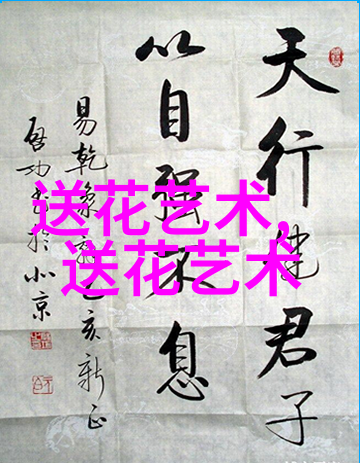 天行健君子
以自强不息
易乾象辞乙亥新正
启功书於北京
送花艺术,
送花艺术